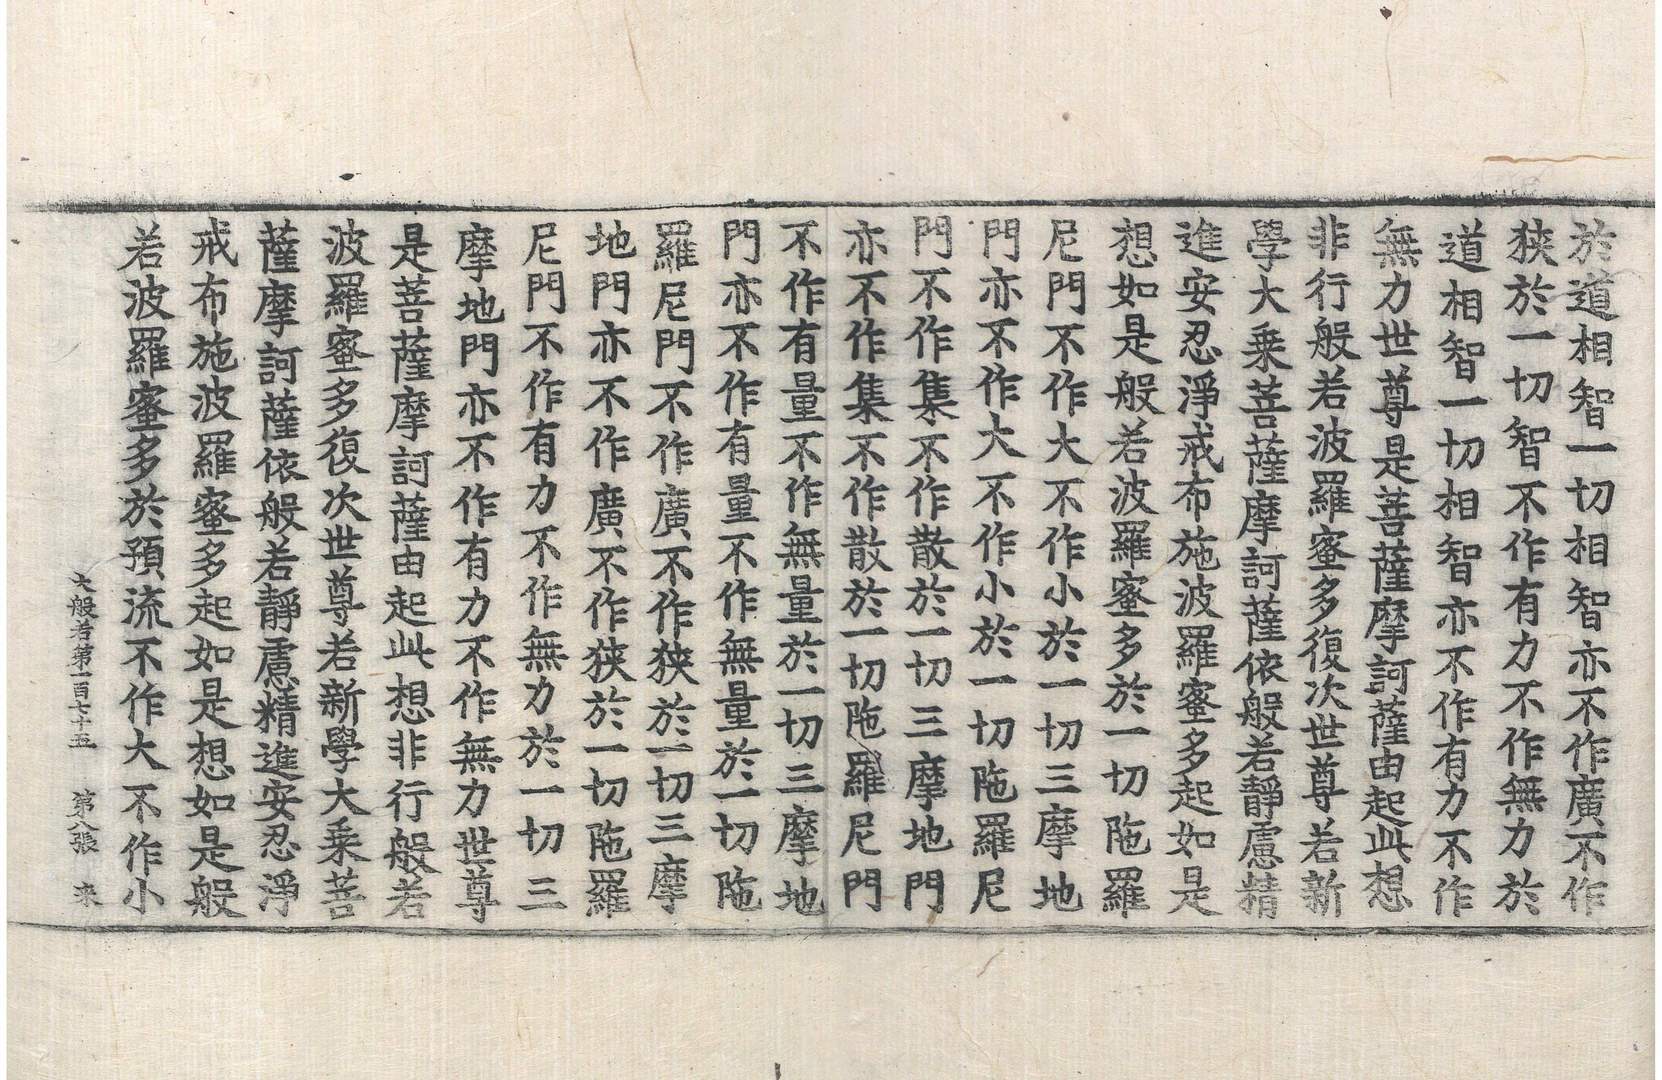 於道相智一切相智亦不作廣不作
狹於一切智不作有力不作無力於
道相智一切相智亦不作有力不作
無力世尊是菩薩摩訶薩由起此想
非行般若波羅蜜多復次世尊若新
學大乘菩薩摩訶薩依般若靜慮精
進安忍淨戒布施波羅蜜多起如是
想如是般若波羅蜜多於一切陁羅
尼門不作大不作小於一切三摩地
門亦不作大不作小於一切陁羅尼
門不作集不作散於一切三摩地門
亦不作集不作散於一切陁羅尼門
不作有量不作無量於一切三摩地
門亦不作有量不作無量於一切陁
羅尼門不作廣不作狹於一切三摩
地門亦不作廣不作狹於一切陁羅
尼門不作有力不作無力於一切三
摩地門亦不作有力不作無力世尊
是菩薩摩訶薩由起此想非行般若
波羅蜜多復次世尊若新學大乘菩
薩摩訶薩依般若靜慮精進安忍淨
戒布施波羅蜜多起如是想如是般
若波羅蜜多於預流不作大不作小
大般若第一百七十五 第八張 來